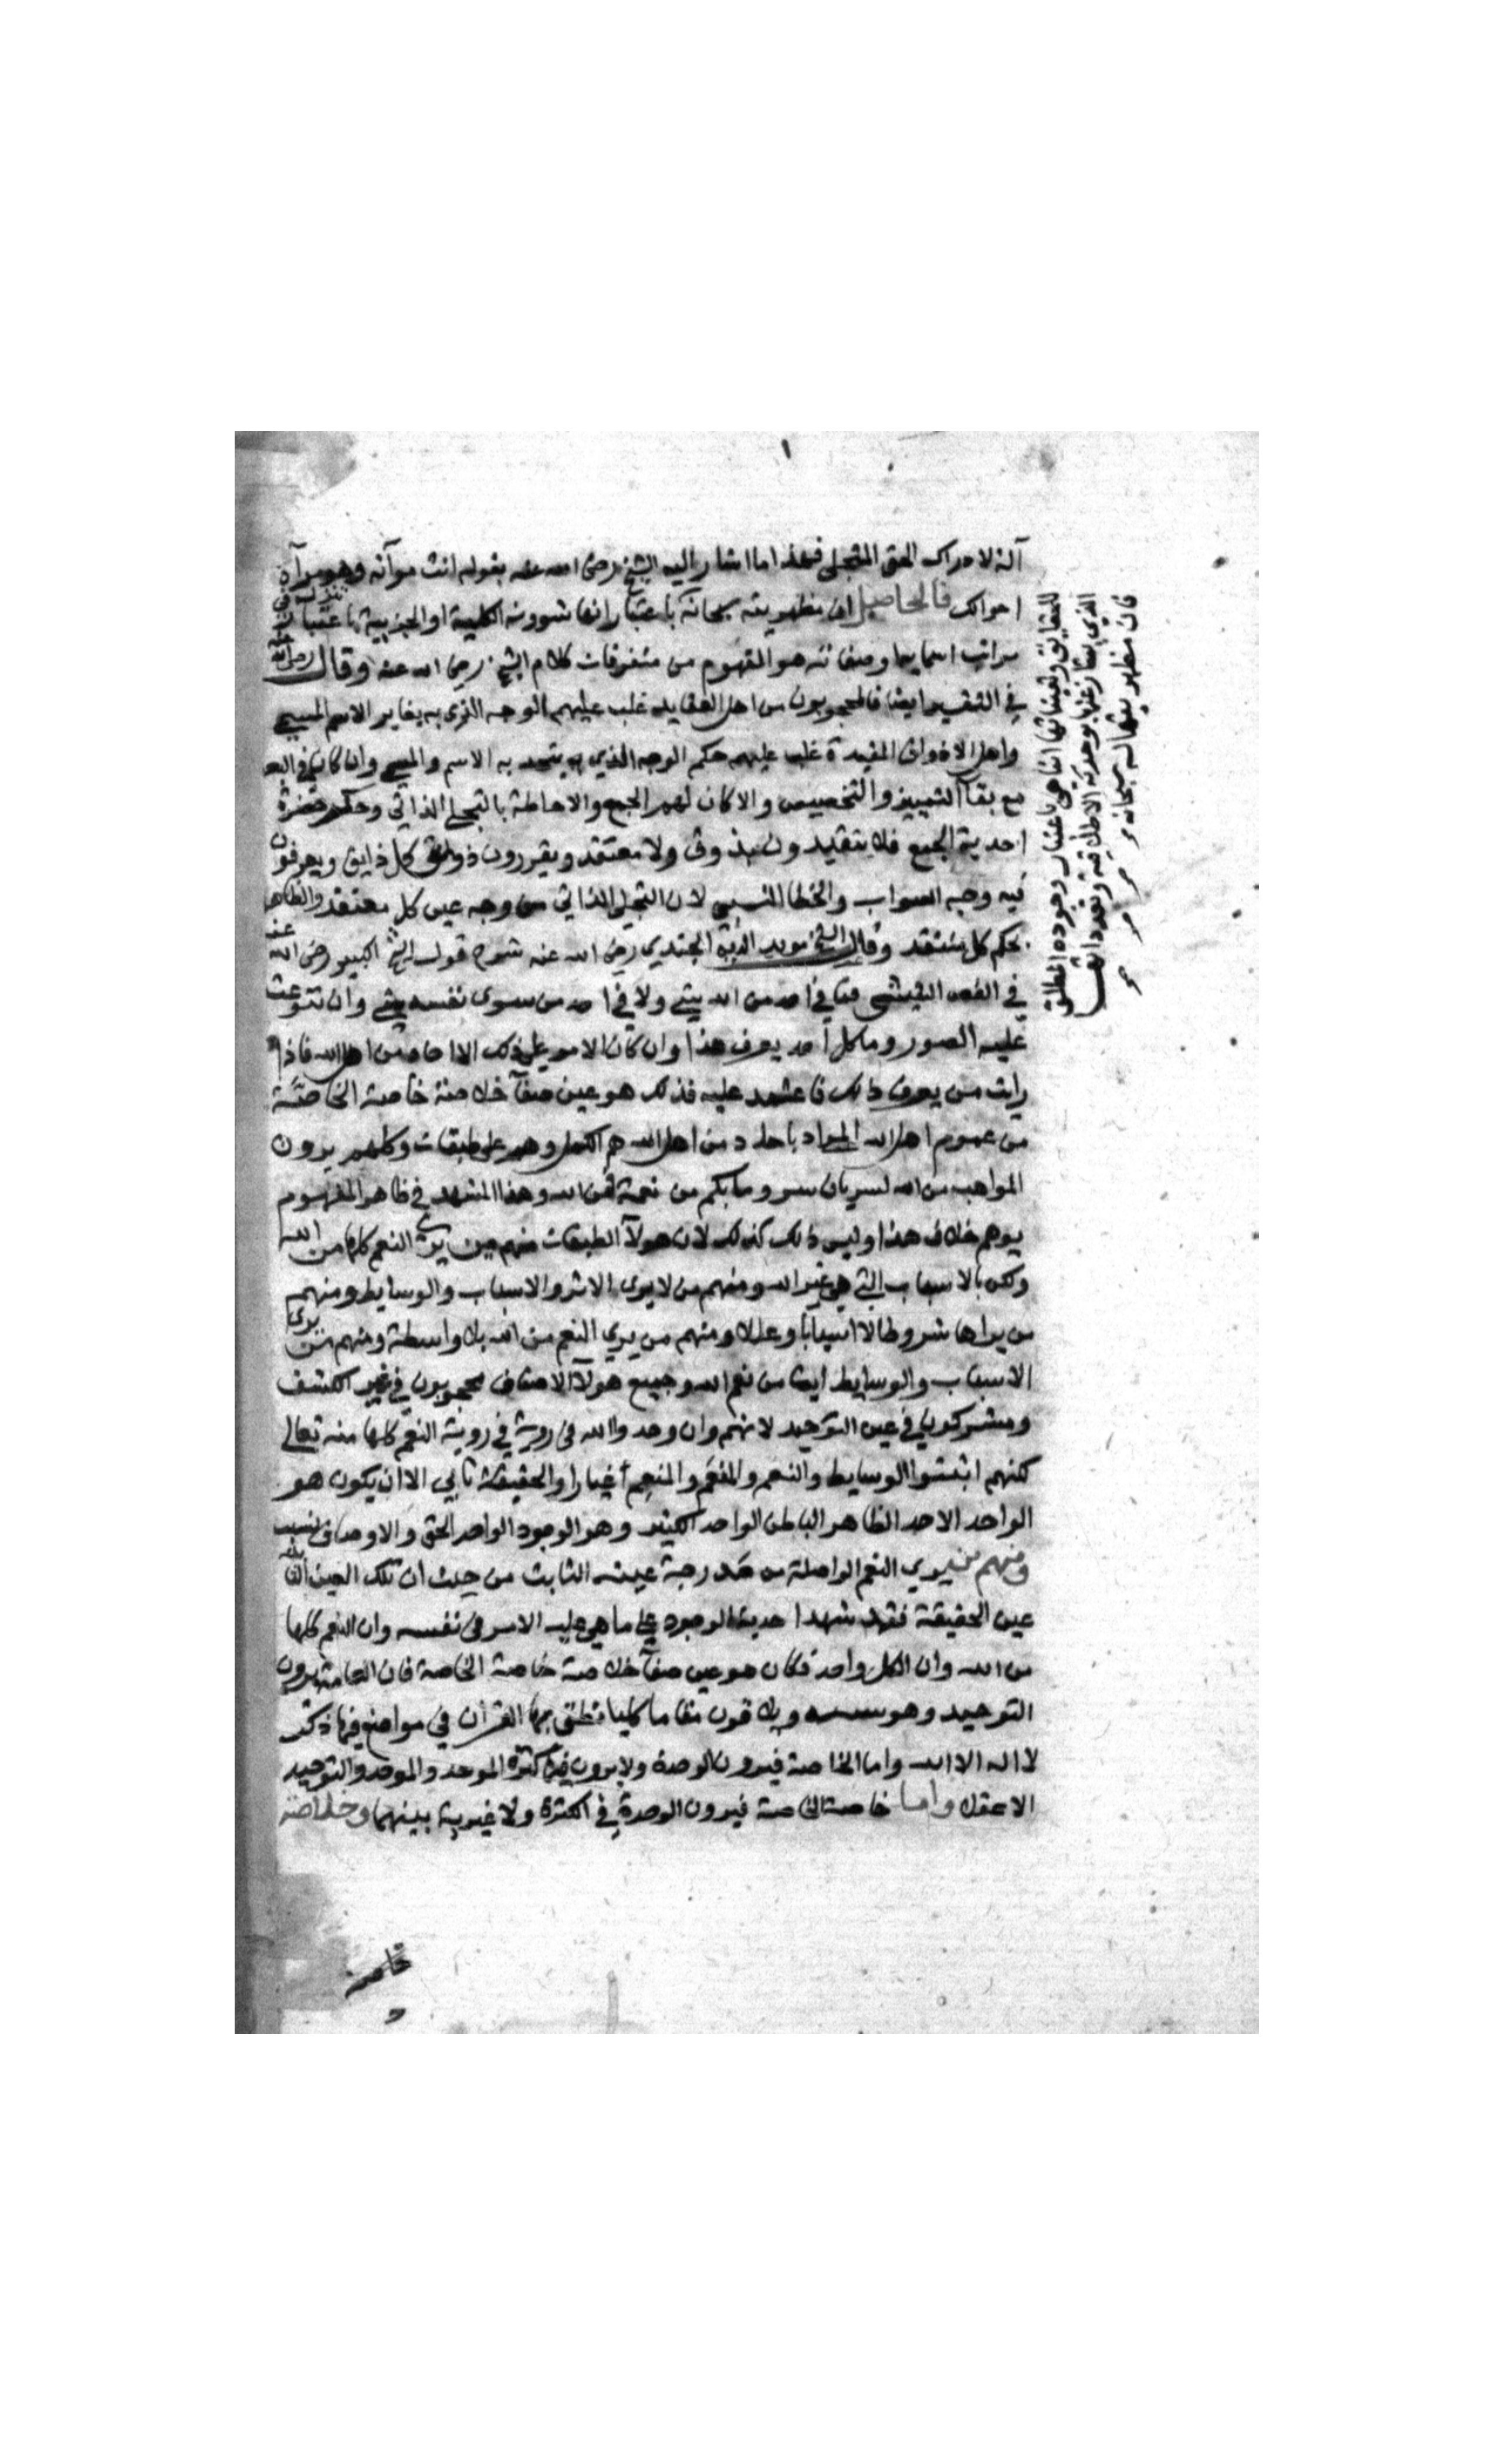 آلة لادراك الحق المتجلي فهذا ما اشار اليه الشيخ رضي الله عنه بقوله انت مرآته وهو مرآة
احوالك فالحاصل ان مظهريته سبحانه باعتبار انها شوونه الكلية او الجزيية باعتبار
مراتب اسمايه وصفاته هو المفهوم من متفرقات كلام الشيخ رضي الله عنه وقال رضي الله
في التفسير ايضا فالمحجوبون من اهل العقايد غلب عليهم الوجه الذي به يغاير الاسم المسمي
واهل الاذواق المقيدة غلب عليهم حكم الوجه الذي به يتحد به الاسم والمسمي وان كان
مع بقا التمييز والتخصيص والاكابر لهم الجمع والاحاطة بالتجلي الذاتي وحكم حضرة
احدية الجمع فلا يتقيدون بذوق ولا معتقد ويقررون ذوق كل ذايق ويعرفون
فيه وجه الصواب والخطا النسبي لان التجلي الذاتي من وجه عين كل معتقد والظاهر
بحكم كل منتقد وقال الشيخ مويد الدين الجندي رضي الله عنه شرح قول الشيخ الكبير رضي الله عنه
في الفص الشيثي فما في احد من الله شي ولا في احد من سوى نفسه شي وان تنوعت
عليه الصور وما كل احد يعرف هذا وان كان الامر علي ذلك الا احاد من اهل الله فاذا
رايت من يعرف ذلك فاعتمد عليه فذلك هو عين صفآ خلاصة خاصة الخاصة
من عموم اهل الله المراد باحاد من اهل الله هم الكمل وهم علي طبقات وكلهم يرون
المواهب من الله لسريان سر وما بكم من نعمة فمن الله وهذا المشهد في ظاهر المفهوم
يوهم خلاف هذا وليس ذلك كذلك لان هولآ الطبقات منهم من يرى النعم كلها من الله
ولكن بالاسباب التي هي غير الله ومنهم من لا يرى الاثر والاسباب والوسايط ومنهم
من يراها شروطا لا اسبابا وعللا ومنهم من يري النعم من الله بلا واسطة ومنهم من يرى
الاسباب والوسايط ايضا من نعم الله وجميع هولآ الاصناف محجوبون في عين الكشف
ومشركون في عين التوحيد لانهم وان وحدوا الله في روية النعم كلها منه تعالي
لكنهم اثبتوا الوسايط والنعم والمنعَم والمنعِم اغيارا والحقيقة تابي الا ان يكون هو
الواحد الاحد الظاهر الباطن الواحد الكثير وهو الوجود الواحد الحق والاوصاف نسب
ومنهم من يري النعم الواصلة من درجة عينه الثابت من حيث ان تلك العين
عين الحقيقة فقد شهد احدية الوجود علي ما هي عليه الامر في نفسه وان النعم كلها
من الله وان الكل واحد فكان هو عين صفآ خلاصة خاصة الخاصة فان العامة يرون
التوحيد وهو ستة وثلاثون مقاما كليا نطق بها القرآن في مواضع فيها ذكر
لا اله الا الله واما الخاصة فيرون الوحدة ولا يرون فيها كثرة الموحد والموحد والتوحيد
الا عقلا واما خاصة الخاصة فيرون الوحدة في الكثرة ولا غيرية بينهما وخلاصة
خاصة
للحقايق وتعيناتها انما هي باعتبار وجوده المطلق
الذي يمتاز عنها بوحدته الاطلاقية وتعددها
فان مظهريتها له سبحانه